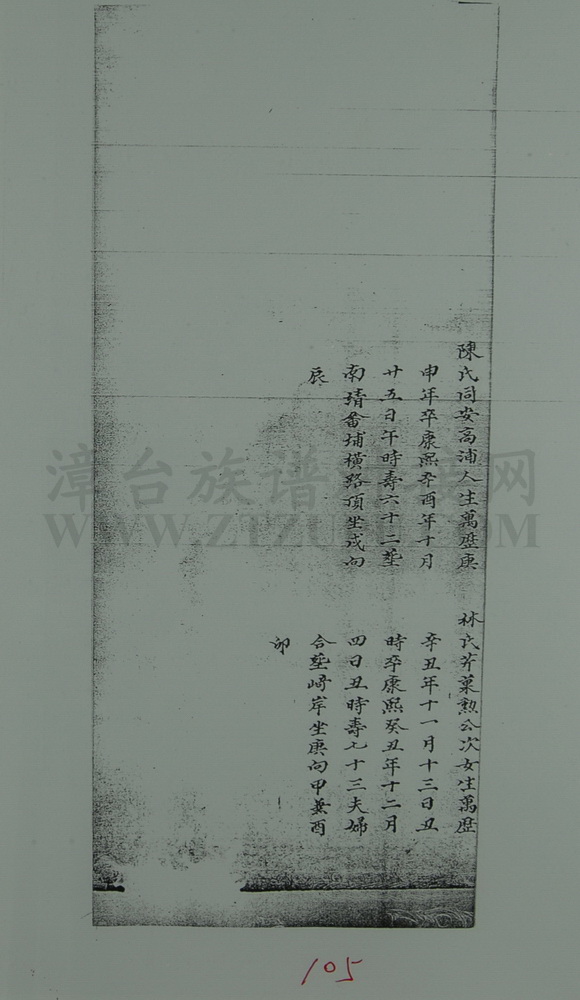 陳氏同安高浦人生萬歷庚
申年卒康熙辛酉年十月
廿五日午時壽六十二塟
南靖畬埔橫路頂坐戌向
辰
林氏芹菓懃公次女生萬歷
辛丑年十一月十三日丑
時卒康熙癸丑年十二月
四日丑時壽七十三夫婦
合塟崎岸坐庚向甲兼酉
卯
漳台族谱 网
WWW.ZTZU .COM
105